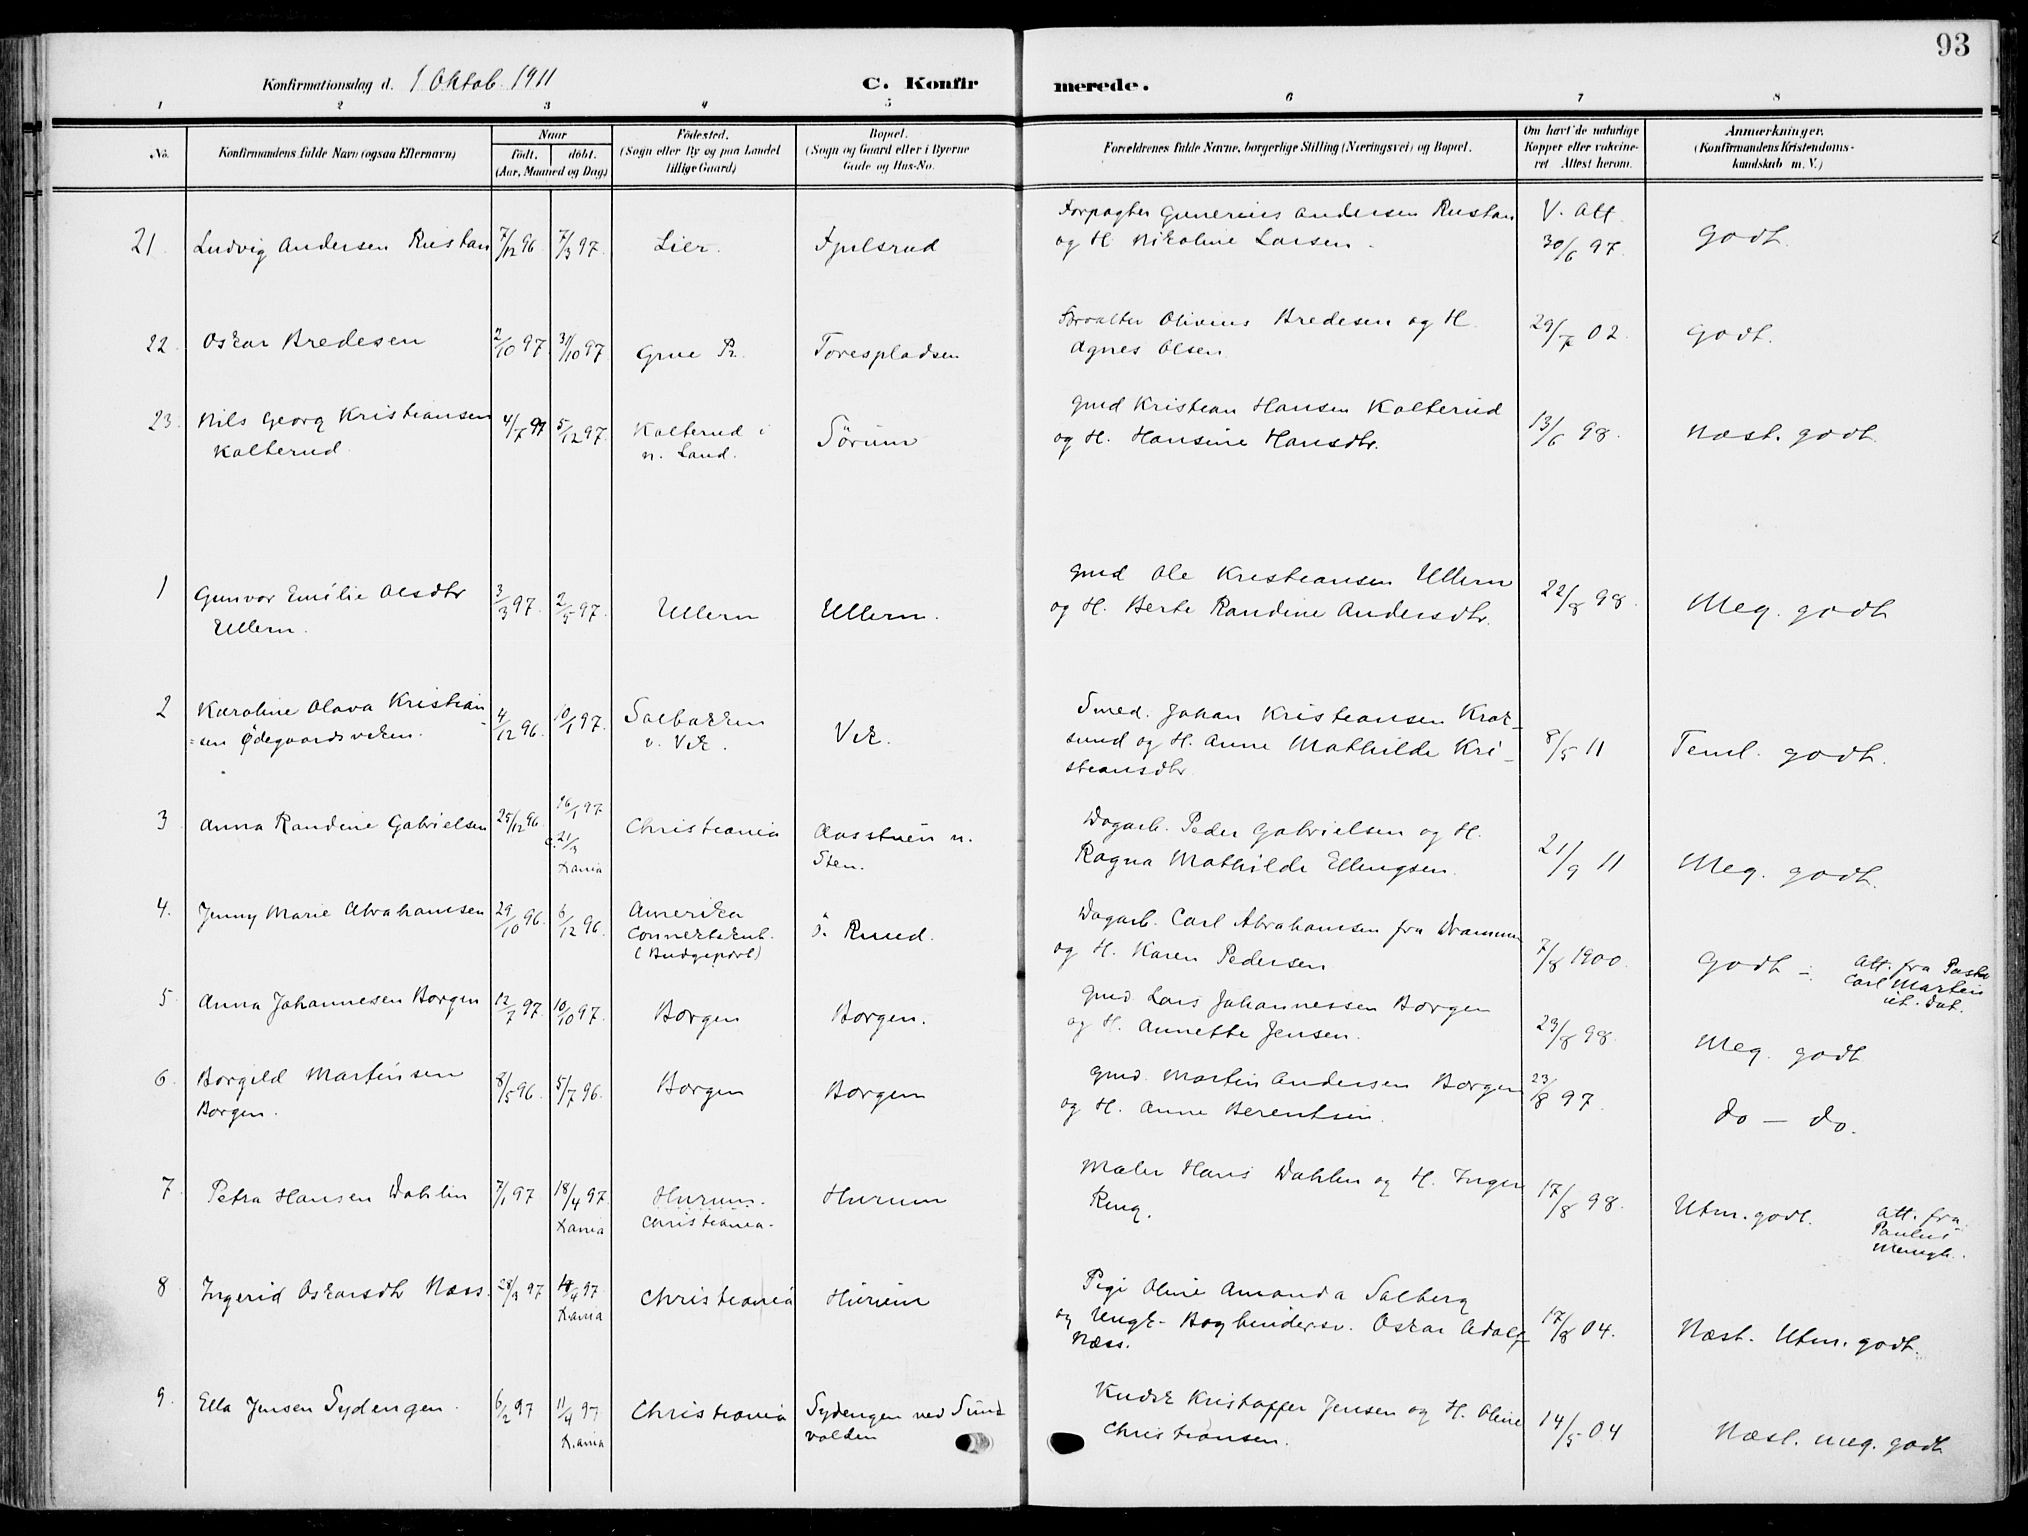 93
Konfirmationsdag d. 1 Oktob. 1911
C. Konfirmerede.
1 2 3 4 5 6 7 8
No. Konfirmandens fulde Navn (ogsaa Efternavn)
Naar født. døbt. (Aar, Maaned og Dag)
Fødested. (Sogn eller By og paa Landet tillige Gaard)
Bopæl. (Sogn og Gaard eller i Byerne Gade og Hus-No.
Forældrenes fulde Navne, borgerlige Stilling (Næringsvei) og Bopæl.
Om havt de naturlige Kopper eller vakcineret Attest herom.
Anmærkninger. (Konfirmandens Kristendomskundskab m. V.)
21. Ludvig Andersen Rustan 7/12 96 7/3 97. Lier. Fjulsrud
Forpagter Gunerius Andersen Rustan
og H. Nikoline Larsen.
V. Att. 30/6 97. Godt.
22. Oskar Bredesen 2/10 97 31/10 97 Grue Pr. Torespladsen
Olivius Bredesen og H.
Agnes Olsen.
29/7 02. Godt.
23. Nils Georg Kristiansen
Kalterud.
4/7 97 5/12 97. Kalterud i
n. Land.
Sørum
Gmd Kristian Hansen Kalterud
og H. Hansine Hansdtr.
13/6 98. Næst. godt.
1 Gunvor Emilie Olsdtr
Ullern.
3/3 97. 2/5 97. Ullern Ullern.
Gmd Ole Kristiansen Ullern
og H. Berte Randine Andersdtr.
22/8 98. Meg. godt
2 Karoline Olava Kristian
=sen Ødegaardsviken.
4/12 96. 10/1 97. Solbakken
v. Vik.
Vik.
Smed. Johan Kristiansen Krok-
sund og H. Anne Mathilde Kri-
stiansdtr.
8/5 11 Teml. godt.
3 Anna Randine Gabrielsen 25/12 96. 16/1 97
21/3
Kania
Christiania Aasstuen n.
Sten.
Dagarb. Peder Gabrielsen og H.
Ragna Mathilde Ellingsen.
21/9 11 Meg. godt.
4. Jenny Marie Abrahamsen 29/10 96. 6/12 96. Amerika
(Bridgeport)
ö. Ruud.
Dagarb. Carl Abrahamsen fra Drammen
og H. Karen Pedersen
7/8 1900. Godt - Att. fra Pastor
Carl Martin
ut. Dat.
5 Anna Johannesen Borgen 12/7 97. 10/10 97. Borgen Borgen.
Gmd. Lars Johannessen Borgen
og H. Annette Jensen.
23/8 98. Meg. godt
6. Borgild Martinsen
Borgen.
8/5 96. 5/7 96. Borgen Borgen
Gmd. Martin Andersen Borgen
og H. Anne Berentsen.
23/8 97. Do - Do.
7. Petra Hansen Dahlin 7/1 97 18/4 97.
Kania
Hurum.
Christiania.
Hurum
Maler Hans Dahlin og H. Inger
Ring.
17/8 98. Utm. godt. Att. fra
Paulus
Menigh.
8 Ingerid Oskarsdtr Næss. 28/3 97 97.
Kania
Christiania Hurum
Pige Oline Amanda Solberg
og Ungk. Bogbindersv. Oskar Adolf
Næss.
17/8 04. Næst. Utm. godt.
9. Ella Jensen Sydengen. 6/2 97 11/4 97
Kania
Christiania Sydengen ved Sund
volden
Kudsk Kristoffer Jensen og H. Oline
Christiansen.
14/5 04 Næst. meg. godt